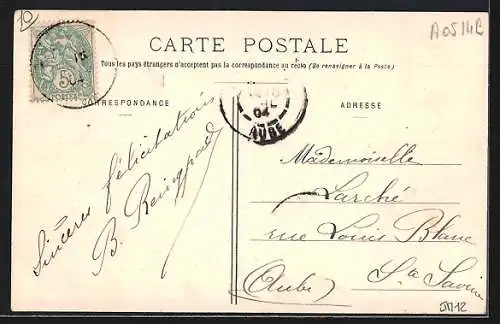 20
A0514B
5c
16
04
CARTE POSTALE
Tous les pays étrangers n'acceptent pas la correspondance au recto (Se renseigner à la Poste)
CORRESPONDANCE
Sincères félicitations
B.
04
AUBE
ADRESSE
Mademoiselle
Larché
rue Louis Blanc
Ste Savine
(Aube)